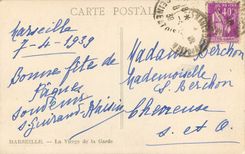 CARTE POSTALE
Marseille
7-4-1939
Bonne fête de
Pâques
Souvenir
Madame Berchon
Mademoiselle
Berchon
Chevreuse
S. et O.
MARSEILLE. — La Vierge de la Garde